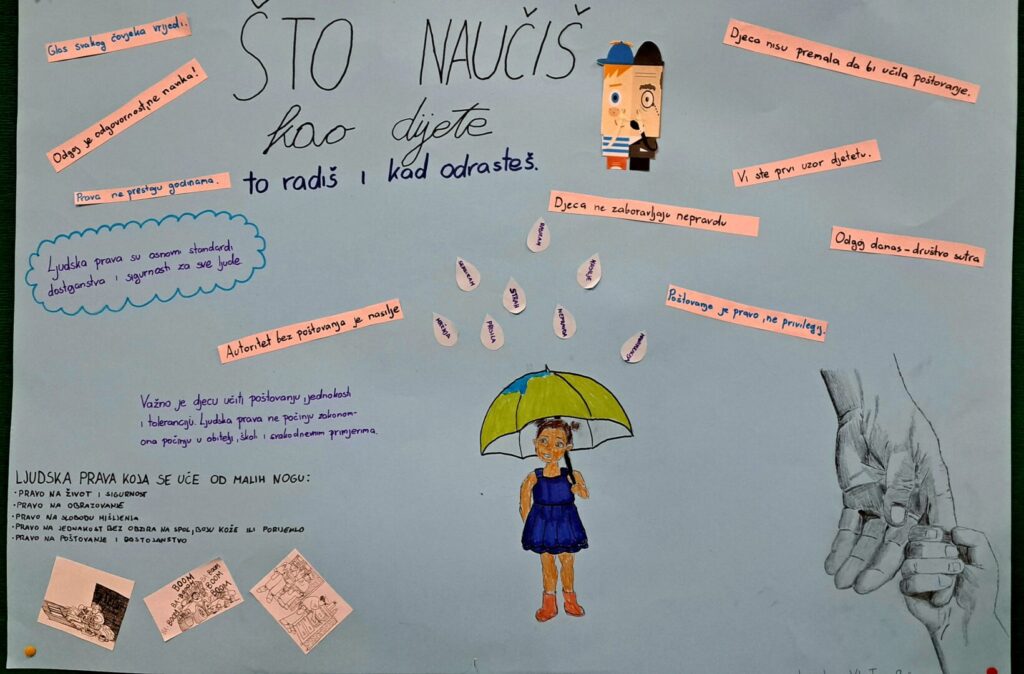 Glas svakog čovjeka vrijedi.
ŠTO NAUČIŠ
kao dijete
to radiš i kad odrasteš.
Djeca nisu premala da bi učila poštovanje.
Odgoj je odgovornost, ne navika!
Vi ste prvi uzor djetetu.
Prava ne prestaju godinama.
Djeca ne zaboravljaju nepravdu
Odgoj danas - društvo sutra
Ljudska prava su osnovni standardi
dostojanstva i sigurnosti za sve ljude.
STRAH
PRAVILA
NEPRAVDA
Poštovanje je pravo, ne privilegij.
Autoritet bez poštovanja je nasilje
Važno je djecu učiti poštovanju, jednakosti
i toleranciji. Ljudska prava ne počinju zakonom-
ona počinju u obitelji, školi i svakodnevnim primjerima.
LJUDSKA PRAVA KOJA SE UČE OD MALIH NOGU:
· PRAVO NA ŽIVOT I SIGURNOST
· PRAVO NA OBRAZOVANJE
· PRAVO NA SLOBODU MIŠLJENJA
· PRAVO NA JEDNAKOST BEZ OBZIRA NA SPOL, BOJU KOŽE ILI PORIJEKLO
· PRAVO NA POŠTOVANJE I DOSTOJANSTVO
BOOM
BOOM
BOOM
BOOM